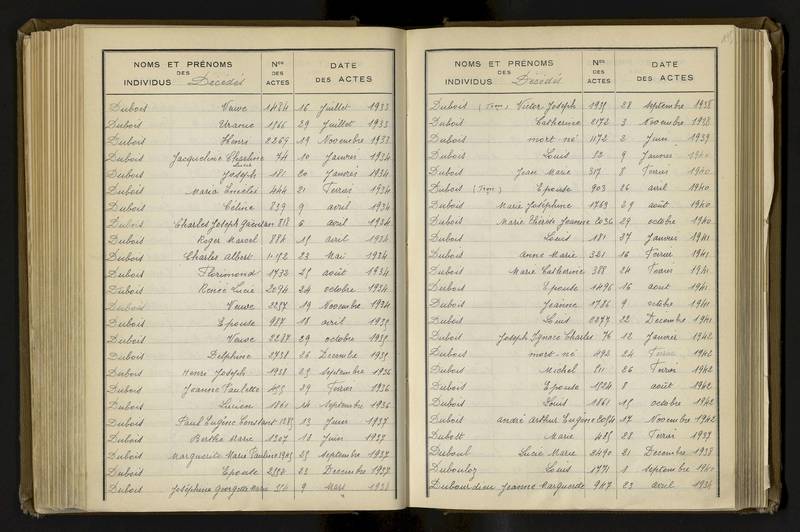 NOMS ET PRÉNOMS DES INDIVIDUS Décédés Nos DES ACTES DATE DES ACTES
Dubois Veuve 1484 16 Juillet 1933
Dubois Uranie 1566 29 Juillet 1933
Dubois Henri 2269 19 Novembre 1933
Dubois Jacqueline Charline 74 10 Janvier 1934
Dubois Joseph 181 20 Janvier 1934
Dubois Maria 444 21 Février 1934
Dubois Céline 839 9 avril 1934
Dubois Charles Joseph 818 6 avril 1934
Dubois Roger Marcel 884 15 avril 1934
Dubois Charles Albert 1152 23 Mai 1934
Dubois Florimond 1732 25 août 1934
Dubois Renée Lucie 2094 24 octobre 1934
Dubois Veuve 2257 19 Novembre 1934
Dubois Epouse 987 18 avril 1935
Dubois Veuve 2287 29 octobre 1935
Dubois Delphine 2738 26 Décembre 1935
Dubois Henri Joseph 1938 25 Septembre 1936
Dubois Jeanne Paulette 29 Février 1936
Dubois Lucien 1861 14 Septembre 1936
Dubois Paul Eugène Constant 1285 13 Juin 1937
Dubois Berthe Marie 1307 18 Juin 1937
Dubois Marguerite Marie Pauline 1945 25 septembre 1937
Dubois Epouse 2550 23 Décembre 1937
Dubois Joséphine Georgette Marie 516 9 Mars 1938
NOMS ET PRÉNOMS DES INDIVIDUS Décédés Nos DES ACTES DATE DES ACTES
Dubois Victor Joseph 1939 28 septembre 1938
Dubois Catherine 2172 3 Novembre 1938
Dubois mort-né 1172 2 Juin 1939
Dubois Louis 52 9 Janvier 1940
Dubois Jean Marie 317 8 Février 1940
Dubois Epouse 903 26 avril 1940
Dubois Marie Joséphine 1763 29 août 1940
Dubois Marie Thérèse Jeanne 2036 29 octobre 1940
Dubois Louis 181 27 Janvier 1941
Dubois Anne Marie 321 16 Février 1941
Dubois Marie Catherine 388 24 Février 1941
Dubois Epouse 1496 16 août 1941
Dubois Jeanne 1786 9 octobre 1941
Dubois Louis 2277 22 Décembre 1941
Dubois Joseph Ignace Charles 76 12 Janvier 1942
Dubois mort-né 492 24 Février 1942
Dubois Michel 511 26 Février 1942
Dubois Epouse 1524 8 août 1942
Dubois Louis 1861 15 octobre 1942
Dubois André Arthur Eugène 2054 17 Novembre 1942
Dubott Marie 485 28 Février 1937
Duboul Lucie Marie 2490 21 Décembre 1938
Dubouloz Louis 1771 1 septembre 1940
Dubourdieu Jeanne Marguerite 947 23 avril 1934